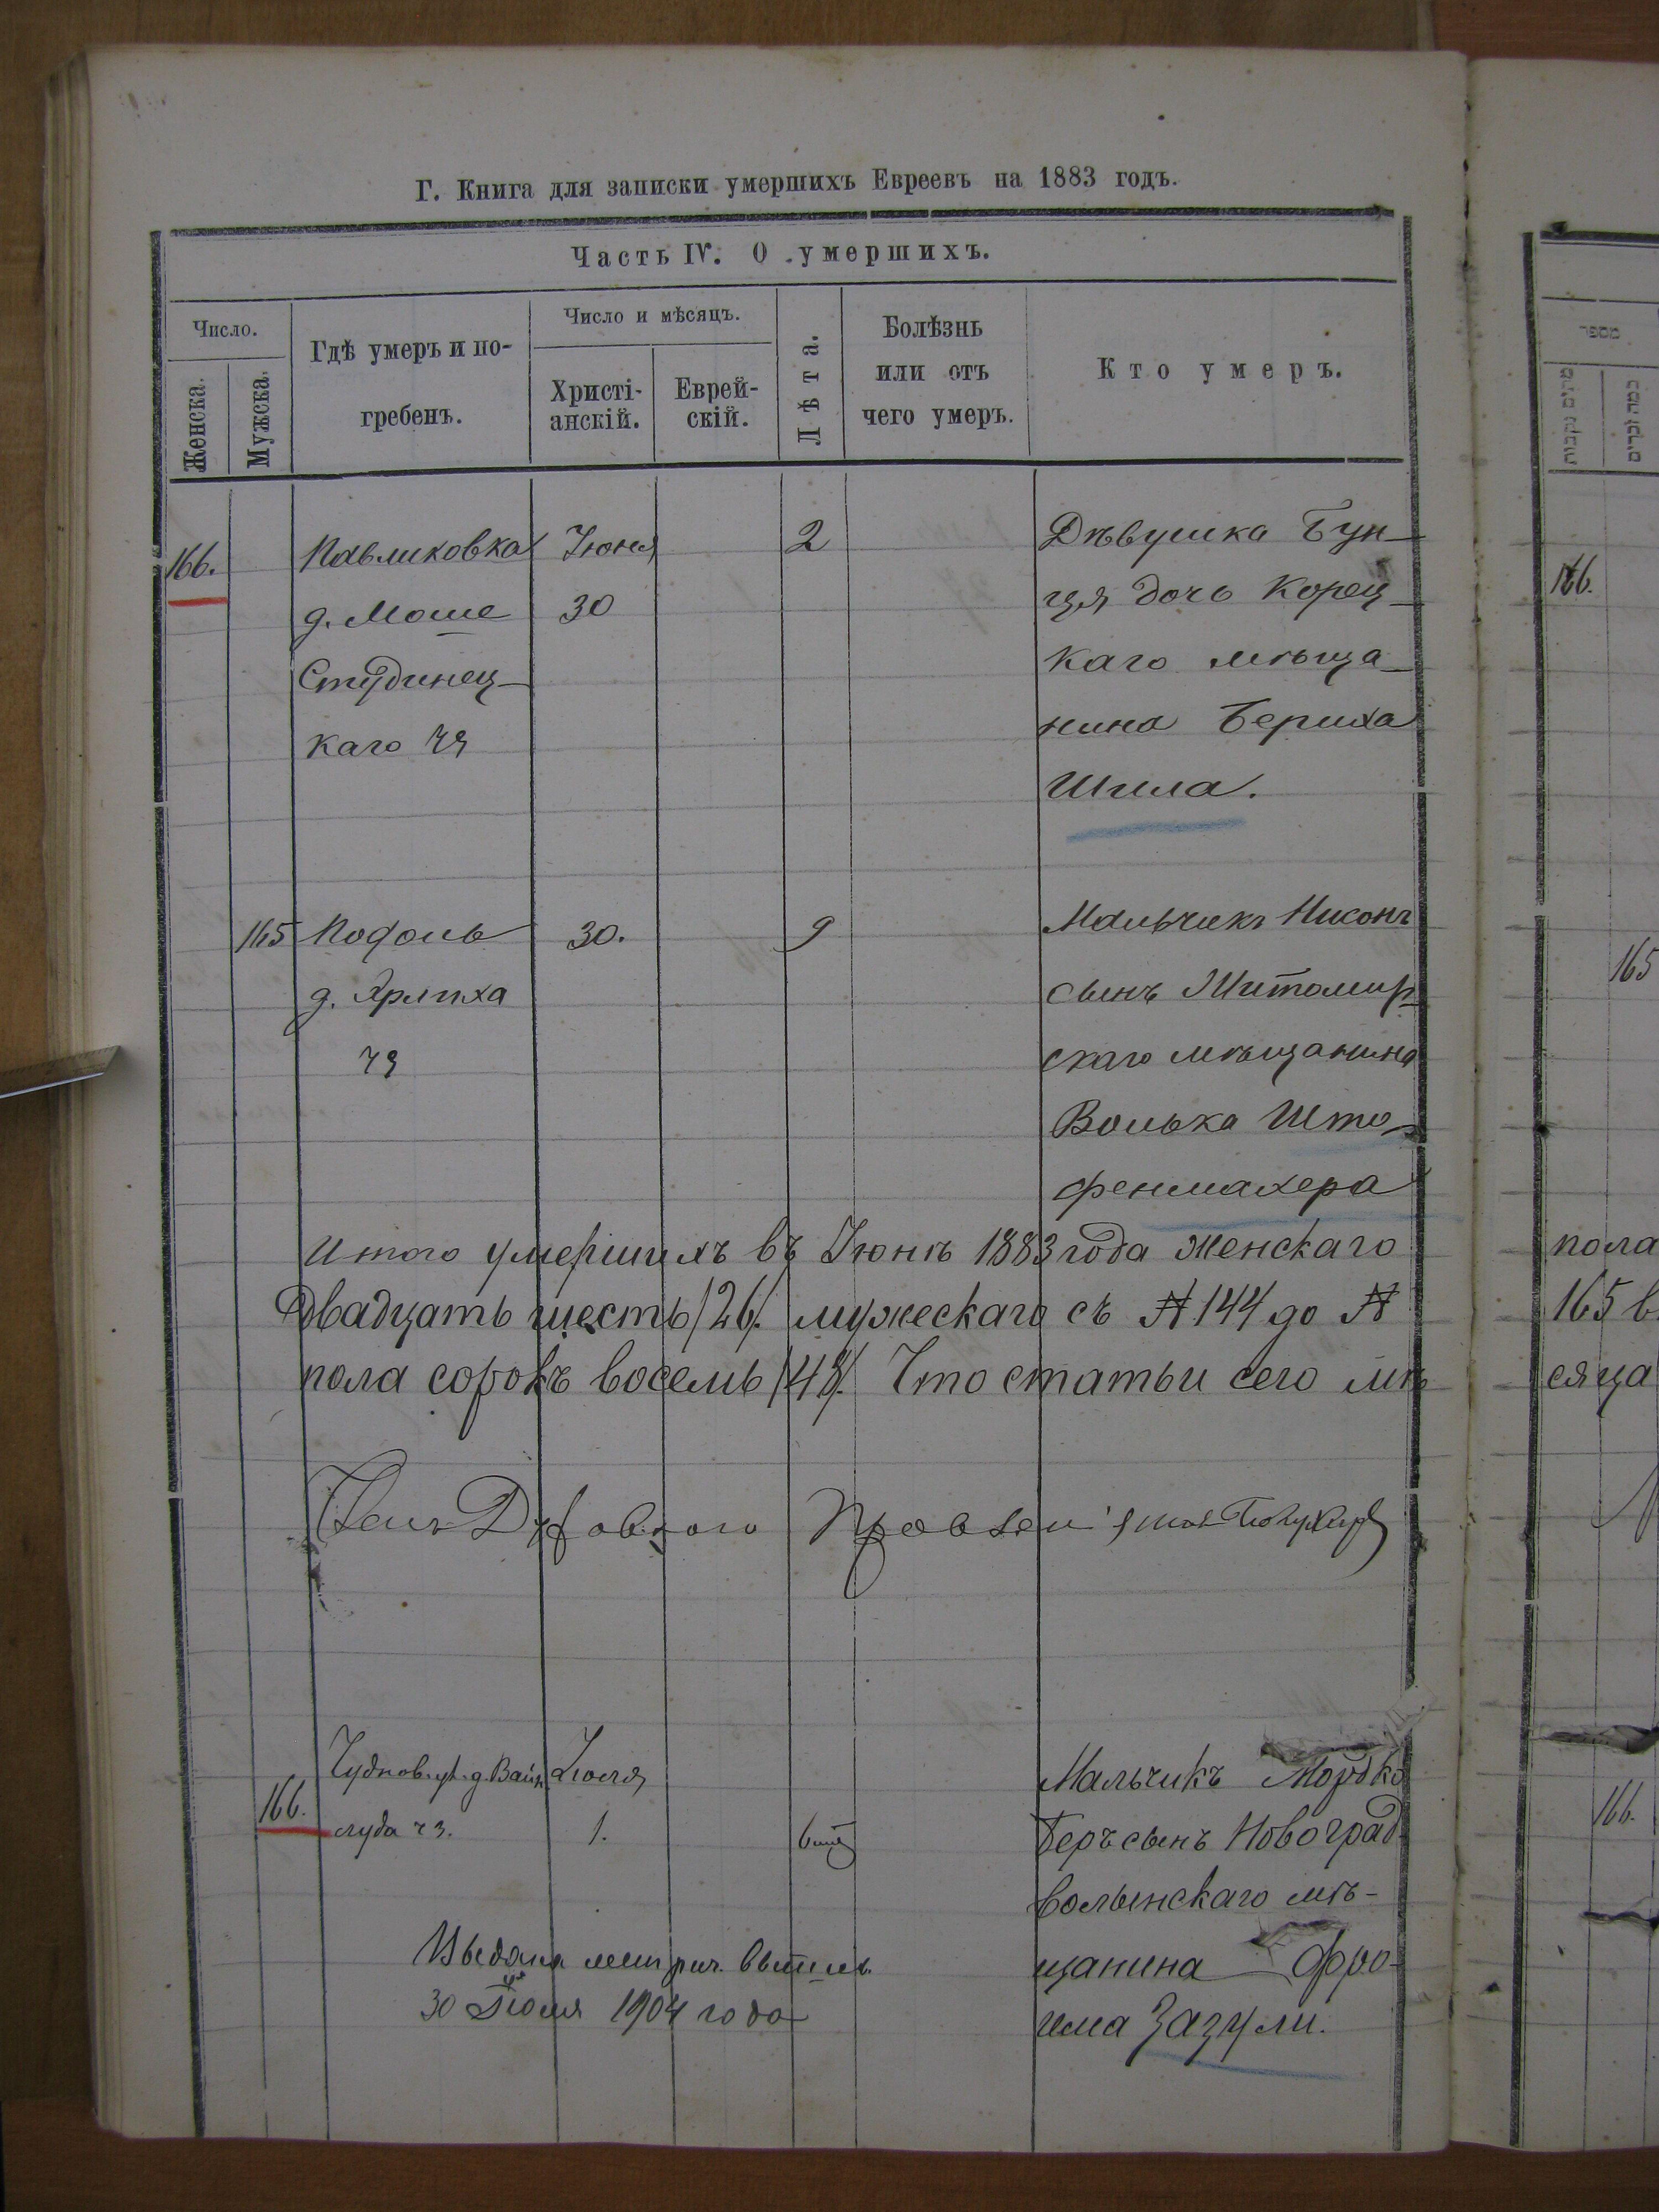 Г. Книга для записки умершихъ Евреевъ на 1883 годъ.
Часть IV. О умершихъ.
Число.
Женска.
Мужска.
Гдѣ умеръ и по-
гребенъ.
Число и мѣсяцъ.
Христі-
анскій.
Еврей-
скій.
Лѣта.
Болѣзнь
или отъ
чего умеръ.
Кто умеръ.
166.
Павликовка
д. Моше
Студинец-
каго ч3
Іюня
30
2
Дѣвушка Бун-
ця дочь Корец-
каго мѣща-
нина Бериха
Шила.
165
Подоль
д.
ч3
30.
9
Мальчикъ Нисонъ
сынъ Житомир-
скаго мѣщанина
Волька Што-
фенмахера
Итого умершихъ въ Іюнѣ 1883 года женскаго
двадцать шесть /26/. мужескаго съ № 144 до №
пола сорокъ восемь /48/. Что статьи сего мѣ
Член Духовного Правленія
166.
Чуднов. ул. д. Вайн-
луда ч3.
Іюля
1.
Мальчикъ Мордко
Беръ сынъ Новоград-
волынскаго мѣ-
щанина Фро-
има Зазули.
Выдана метрич. выпись
30 Іюля 1904 года
מספר
כמה זכרים
166.
165
пола
165 в
сяца
166.